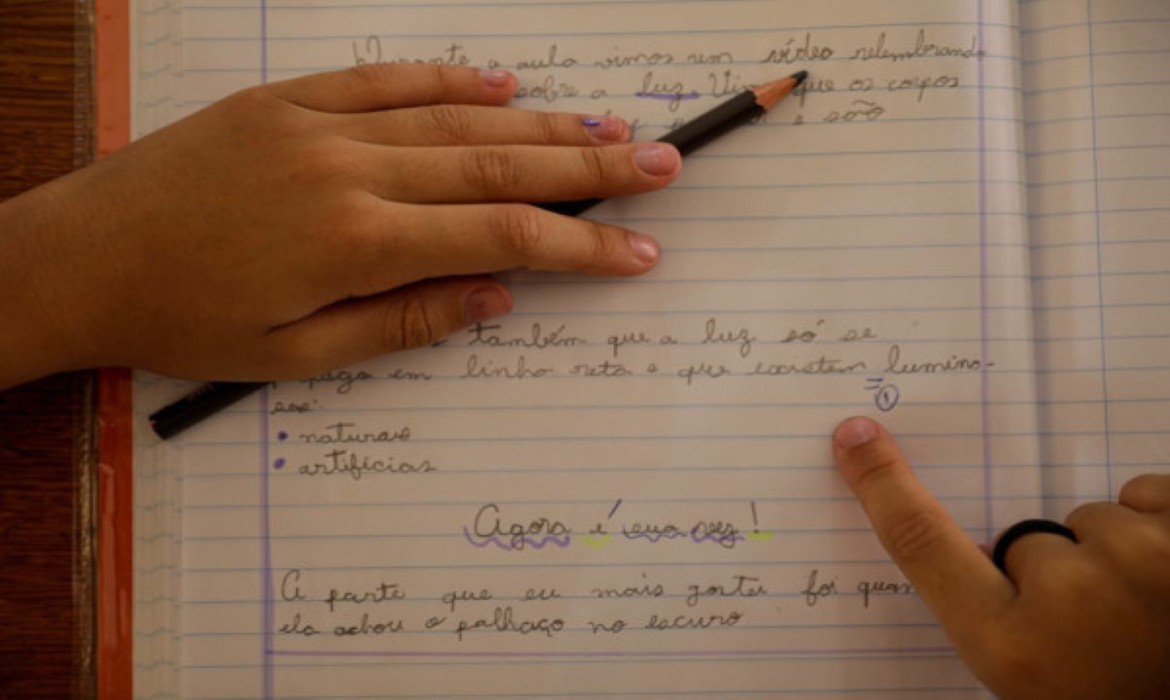 Durante a aula vimos um vídeo relembrando
sobre a luz. Vimos que os corpos
e são
também que a luz só se
em linha reta e que existem lumino-
sas:
• naturais
• artificias
=①
Agora é sua vez!
A parte que eu mais gostei foi quan
ela achou o palhaço no escuro